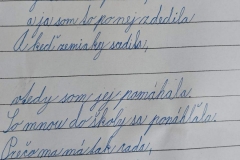 a ja som to po nej zdedila
A keď zemiaky sadila,
vtedy som jej pomáhala
So mnou do školy sa ponáhľala,
Prečo ma má tak rada,